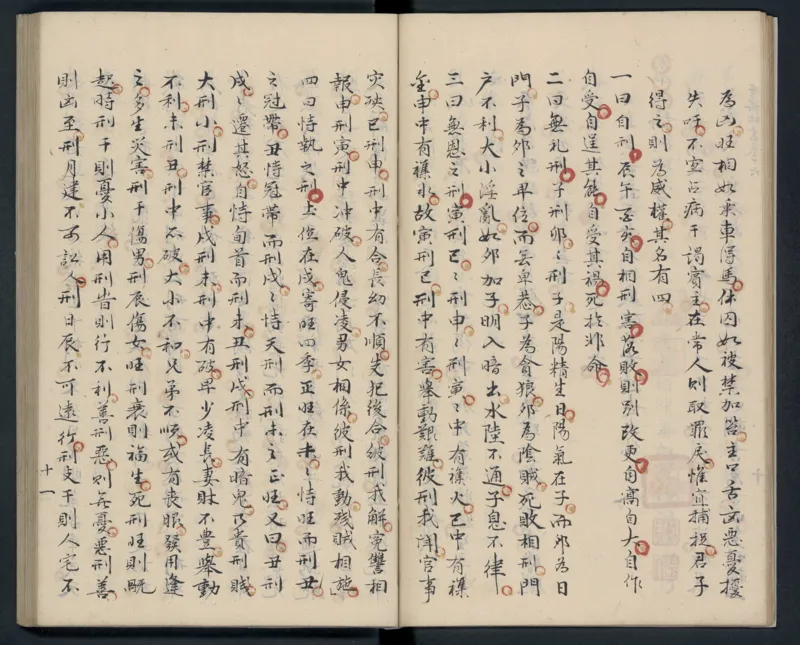 為凶旺相如乘車得馬休囚如被禁加笞主口舌文悪憂擾
失呼不宜占病干謁賓主在常人則取罪戾惟宜捕捉君子
得之則為威權其名有四
一曰自刑辰午酉亥自相刑害落敗則別改更自高自大自作
自受自逞其能自受其禍死於非命
二曰無礼刑子刑卯〻刑子是陽精生日陽氣在子而卯為日
門子為卯之卑位而無卑惹子為貪狼卯為陰賊死敗相刑門
户不利大小淫亂如卯加子明入暗出水陸不通子息不律
三曰無恩之刑寅刑巳〻刑申〻刑寅〻中有襍火巳中有襍
金申中有襍水故寅刑巳刑中有害舉動艱難彼刑我闬官事
灾殃巳刑申刑中有合長幼不順先犯後合彼刑我解寃讐相
報申刑寅刑中冲破人鬼侵凌男女相傷彼刑我動残賊相施
四曰恃執之刑土位在戌寄旺四季正旺在未〻恃旺而刑丑
之冠帶丑恃冠帶而刑戌〻恃天刑而刑未之正旺又曰丑刑
戌〻遷其怒自恃旬首而刑未丑刑戌刑中有暗鬼乃貴刑賊
大刑小刑禁官事戌刑未刑中有破卑少凌長妻財不豊舉動
不利未刑丑刑中不破大小不和兄弟不順或有喪服發用逢
之多生災害刑干傷男刑辰傷女旺刑衰則福生死刑旺則甌
起時刑干則憂小人用刑皆則行不利善刑悪則無憂悪刑善
則凶至刑月建不可訟人刑日辰不可遠行刑支干則人宅不
十一